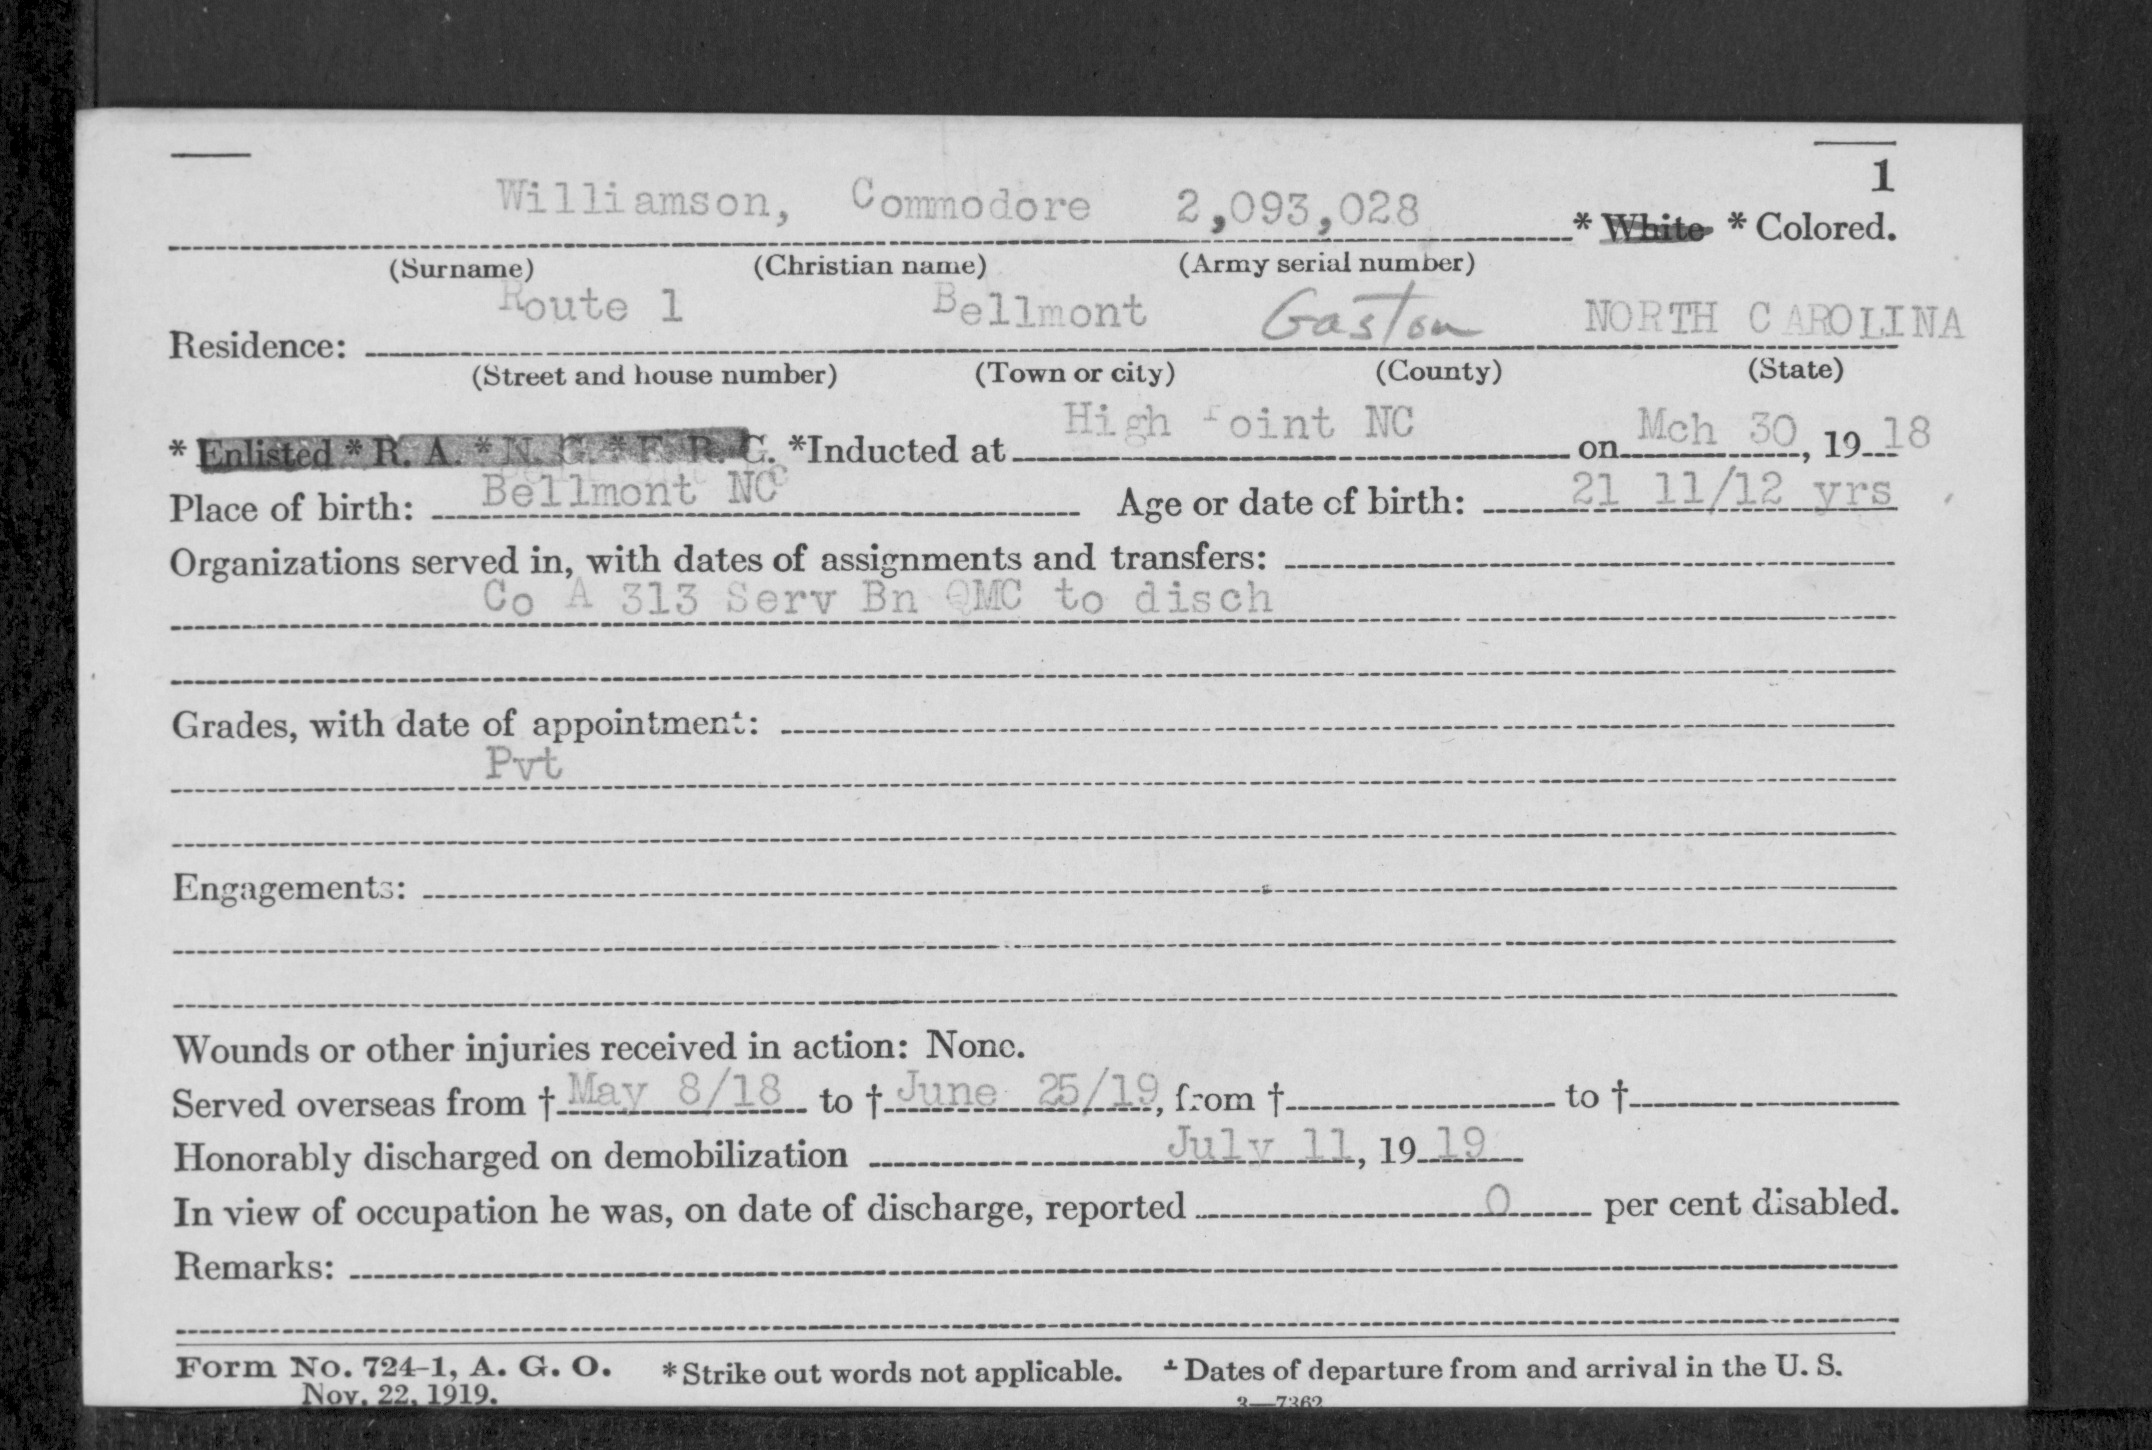 1
Williamson, Commodore 2,093,028 * White * Colored.
(Surname) (Christian name) (Army serial number)
Route 1 Bellmont Gaston NORTH CAROLINA
Residence:
(Street and house number) (Town or city) (County) (State)
* Enlisted * R. A. * N. G. * E. R. C. *Inducted at High Point NC on Mch 30, 1918
Place of birth: Bellmont NC Age or date of birth: 21 11/12 yrs
Organizations served in, with dates of assignments and transfers:
Co A 313 Serv Bn QMC to disch
Grades, with date of appointment:
Pvt
Engagements:
Wounds or other injuries received in action: None.
Served overseas from † May 8/18 to † June 25/19, from † to †
Honorably discharged on demobilization July 11, 1919
In view of occupation he was, on date of discharge, reported 0 per cent disabled.
Remarks:
Form No. 724-1, A. G. O. * Strike out words not applicable. † Dates of departure from and arrival in the U. S.
Nov. 22, 1919. 3—7362